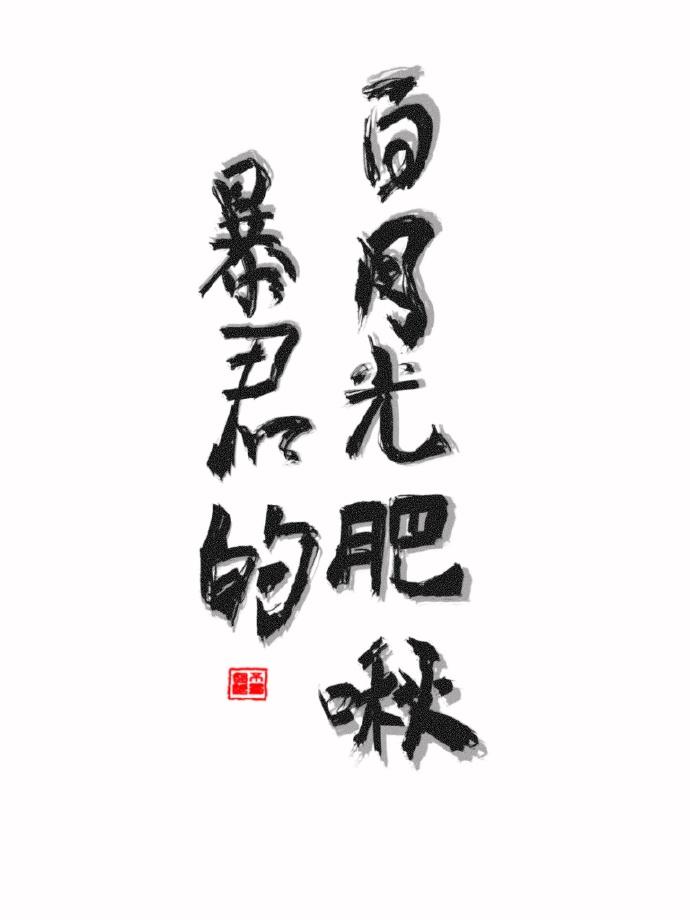 暴君的
白月光肥啾